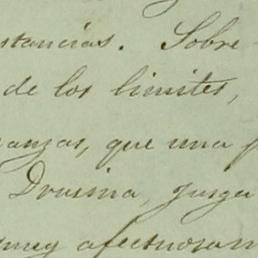 stancias. Sobre
de los limites,
anzas, que una p
Drusina, juzga
muy afectuosam